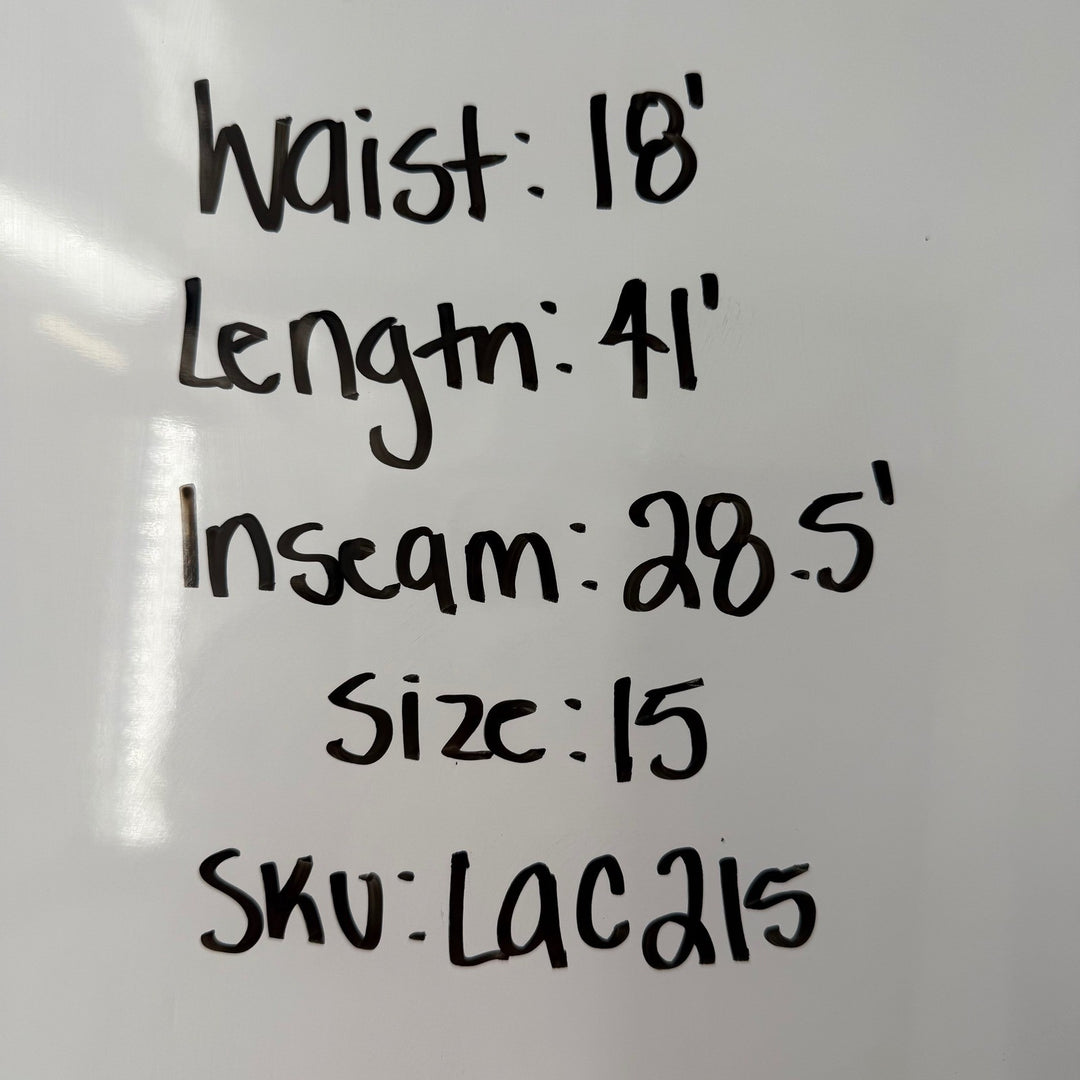 Waist: 18'
Length: 41'
Inseam: 28.5'
Size: 15
SKU: Lac215